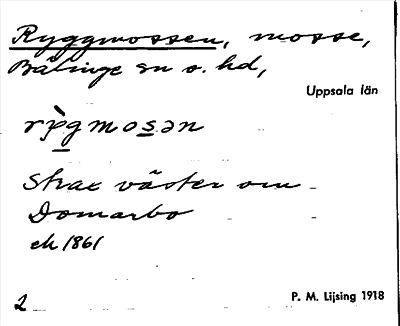 Ryggmossen, mosse,
Bälinge sn o. hd,
Uppsala län
rỳgmosən
Strax väster om
Domarbo
ek 1861
2
P. M. Lijsing 1918